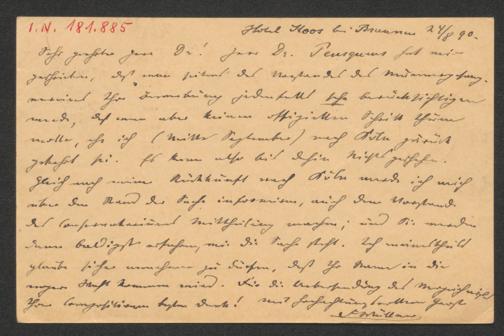 I.N. 181.885
Hotel Moos bei Brunnen 24/8 90.
Sehr geehrter Herr Dr! Herr Dr. hat mir
geschrieben, daß man seitens des Vorstandes des
vereines Ihre Bewerbung jedenfalls sehr berücksichtigen
werde, daß man aber keinen offiziellen Schritt thun
wolle, ehe ich (Mitte September) nach Köln zurück
gekehrt sei. Es kann also bis dahin Nichts geschehen.
Gleich nach meiner Rückkunft nach Köln werde ich mich
über den Stand der Sache informiren, auch dem Vorstande
des Conservatoriums Mittheilung machen; und Sie werden
dann baldigst erfahren, wie die Sache steht. Ich meinestheils
glaube sicher annehmen zu dürfen, daß Ihr Name in die
engere Wahl kommen wird. Für die Uebersendung des
Ihrer Compositionen besten Dank! Mit hochachtungsvollem Gruß
Wüllner